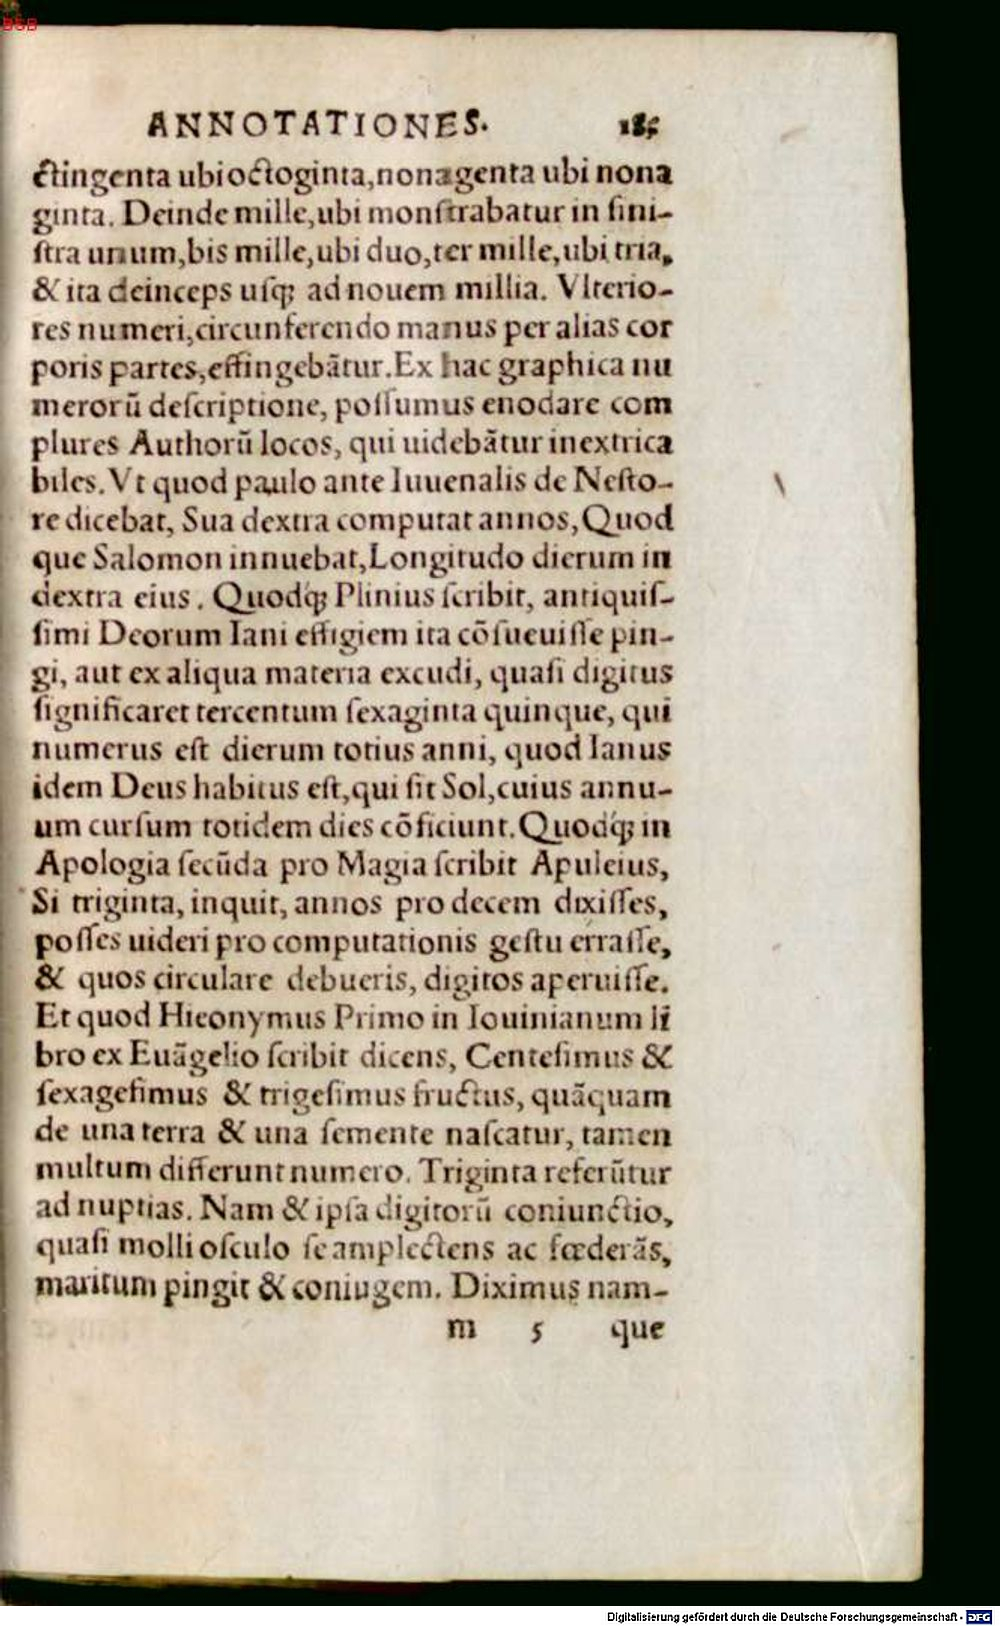 ANNOTATIONES. 185
ctingenta ubi octoginta, nonagenta ubi nona
ginta. Deinde mille, ubi monſtrabatur in ſini-
ſtra unum, bis mille, ubi duo, ter mille, ubi tria,
& ita deinceps uſq; ad nouem millia. Vlterio-
res numeri, circunferendo manus per alias cor
poris partes, effingebãtur. Ex hac graphica nu
merorũ deſcriptione, poſſumus enodare com
plures Authorũ locos, qui uidebãtur inextrica
biles. Vt quod paulo ante Iuuenalis de Neſto-
re dicebat, Sua dextra computat annos, Quod
que Salomon innuebat, Longitudo dierum in
dextra eius. Quodq́; Plinius ſcribit, antiquiſ-
ſimi Deorum Iani effigiem ita cõſueuiſſe pin-
gi, aut ex aliqua materia excudi, quaſi digitus
ſignificaret tercentum ſexaginta quinque, qui
numerus eſt dierum totius anni, quod Ianus
idem Deus habitus eſt, qui ſit Sol, cuius annu-
um curſum totidem dies cõficiunt. Quodq́; in
Apologia ſecũda pro Magia ſcribit Apuleius,
Si triginta, inquit, annos pro decem dixiſſes,
poſſes uideri pro computationis geſtu erraſſe,
& quos circulare debueris, digitos aperuiſſe.
Et quod Hieonymus Primo in Iouinianum li
bro ex Euãgelio ſcribit dicens, Centeſimus &
ſexageſimus & trigeſimus fructus, quãquam
de una terra & una ſemente naſcatur, tamen
multum differunt numero. Triginta referũtur
ad nuptias. Nam & ipſa digitorũ coniunctio,
quaſi molli oſculo ſe amplectens ac fœderãs,
maritum pingit & coniugem. Diximus nam-
m 5 que
Digitalisierung gefördert durch die Deutsche Forschungsgemeinschaft - DFG